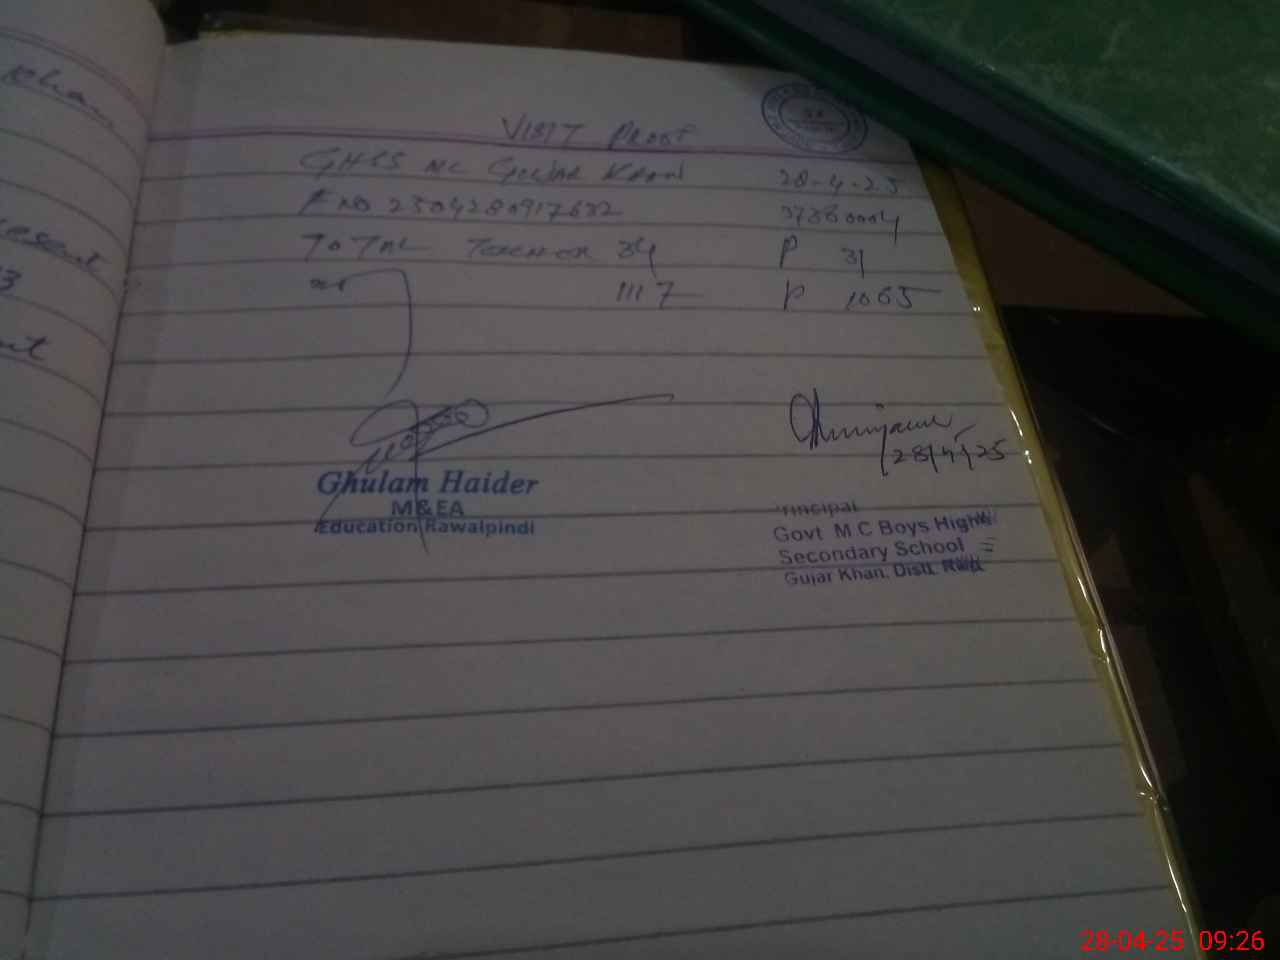 Khan
esent
3
VISIT PROOF
GHSS MC GUJAR KHAN 28-4-25
F NO 2304280917632 37380004
TOTAL TEACHER 34 P 31
1117 P 1065
28/4/25
Ghulam Haider
M&EA
Education Rawalpindi
Principal
Govt M C Boys High
Secondary School
Gujar Khan. Distt. Rwp
28-04-25 09:26